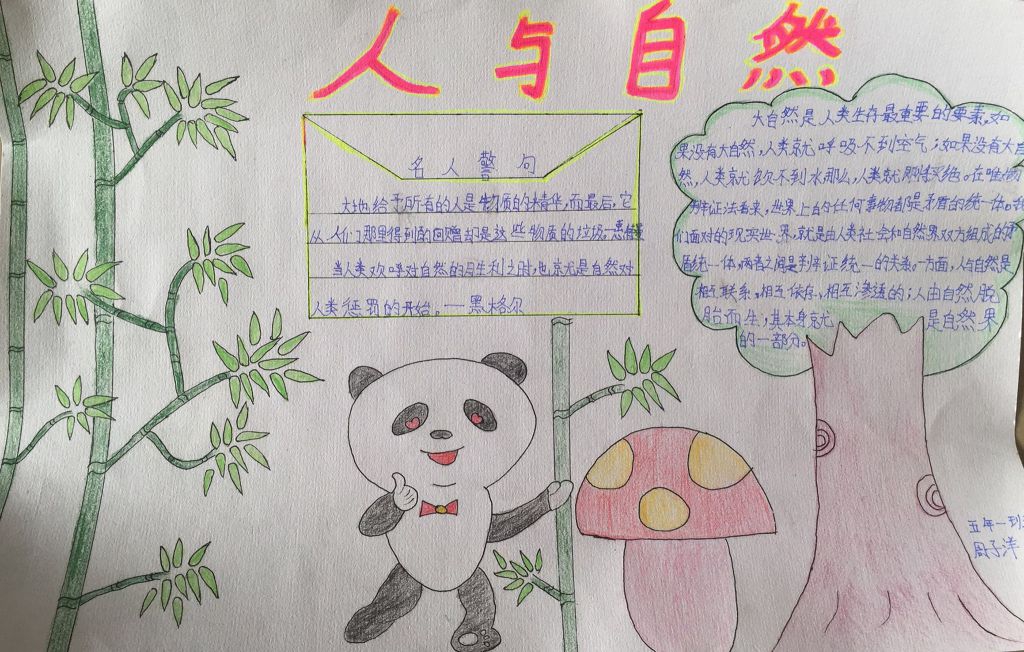 人与自然
名人警句
大地给于所有的人是物质的精华,而最后,它
从人们那里得到的回赠却是这些物质的垃圾—惠特曼
当人类欢呼对自然的胜利之时,也就是自然对
人类惩罚的开始。——黑格尔
大自然是人类生存最重要的要素,如
果没有大自然,人类就呼吸不到空气;如果没有大自
然,人类就饮不到水那么,人类就刚灭绝。在唯物
辩证法看来,世界上的任何事物都是矛盾的统一体。我
们面对的现实世界,就是由人类社会和自然界双方组成的矛
盾统一体,两者之间是辩证统一的关系。一方面,人与自然是
相互联系,相互依存,相互渗透的;人由自然脱
胎而生,其本身就是自然界
的一部分。
五年一到
周子洋